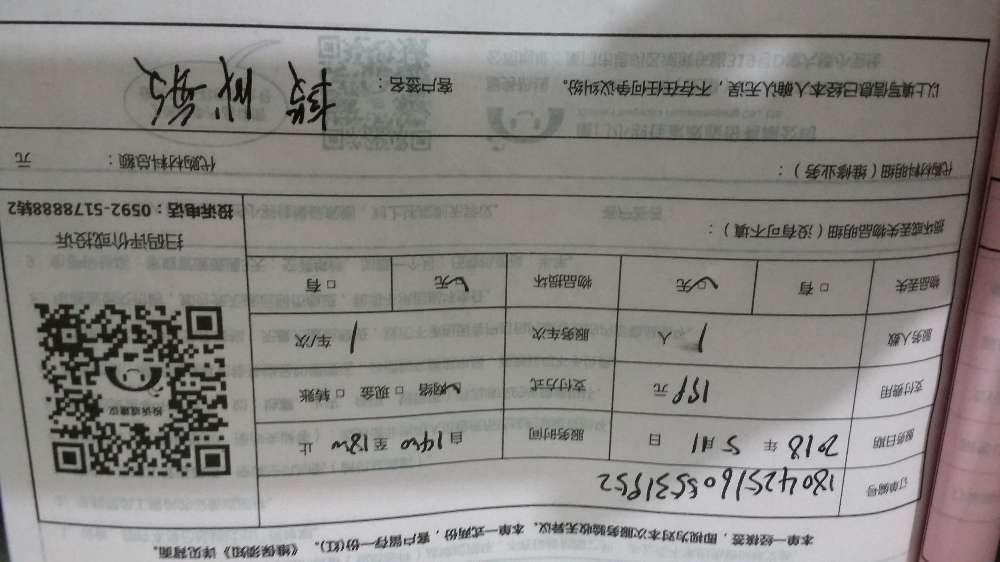 本单一经接签，即视为对本次服务验收无异议。本单一式两份，客户留存一份(红)。《维保须知》详见背面。
订单编号 1804251605531952
服务日期 2018 年 5 月 11 日 服务时间 自 1400 至 1800 止
支付费用 199 元 支付方式 ☑网络 □现金 □转账
服务人数 1 人 服务车次 1 车/次
物品丢失 □有 ☑无 物品损坏 ☑无 □有
投诉或建议
扫码评价或投诉
投诉电话：0592-5178888转2
损坏或丢失物品明细（没有可不填）：
代购材料明细（维修业务）： 代购材料总额： 元
以上填写信息已经本人确认无误，不存在任何争议纠纷。 客户签名：